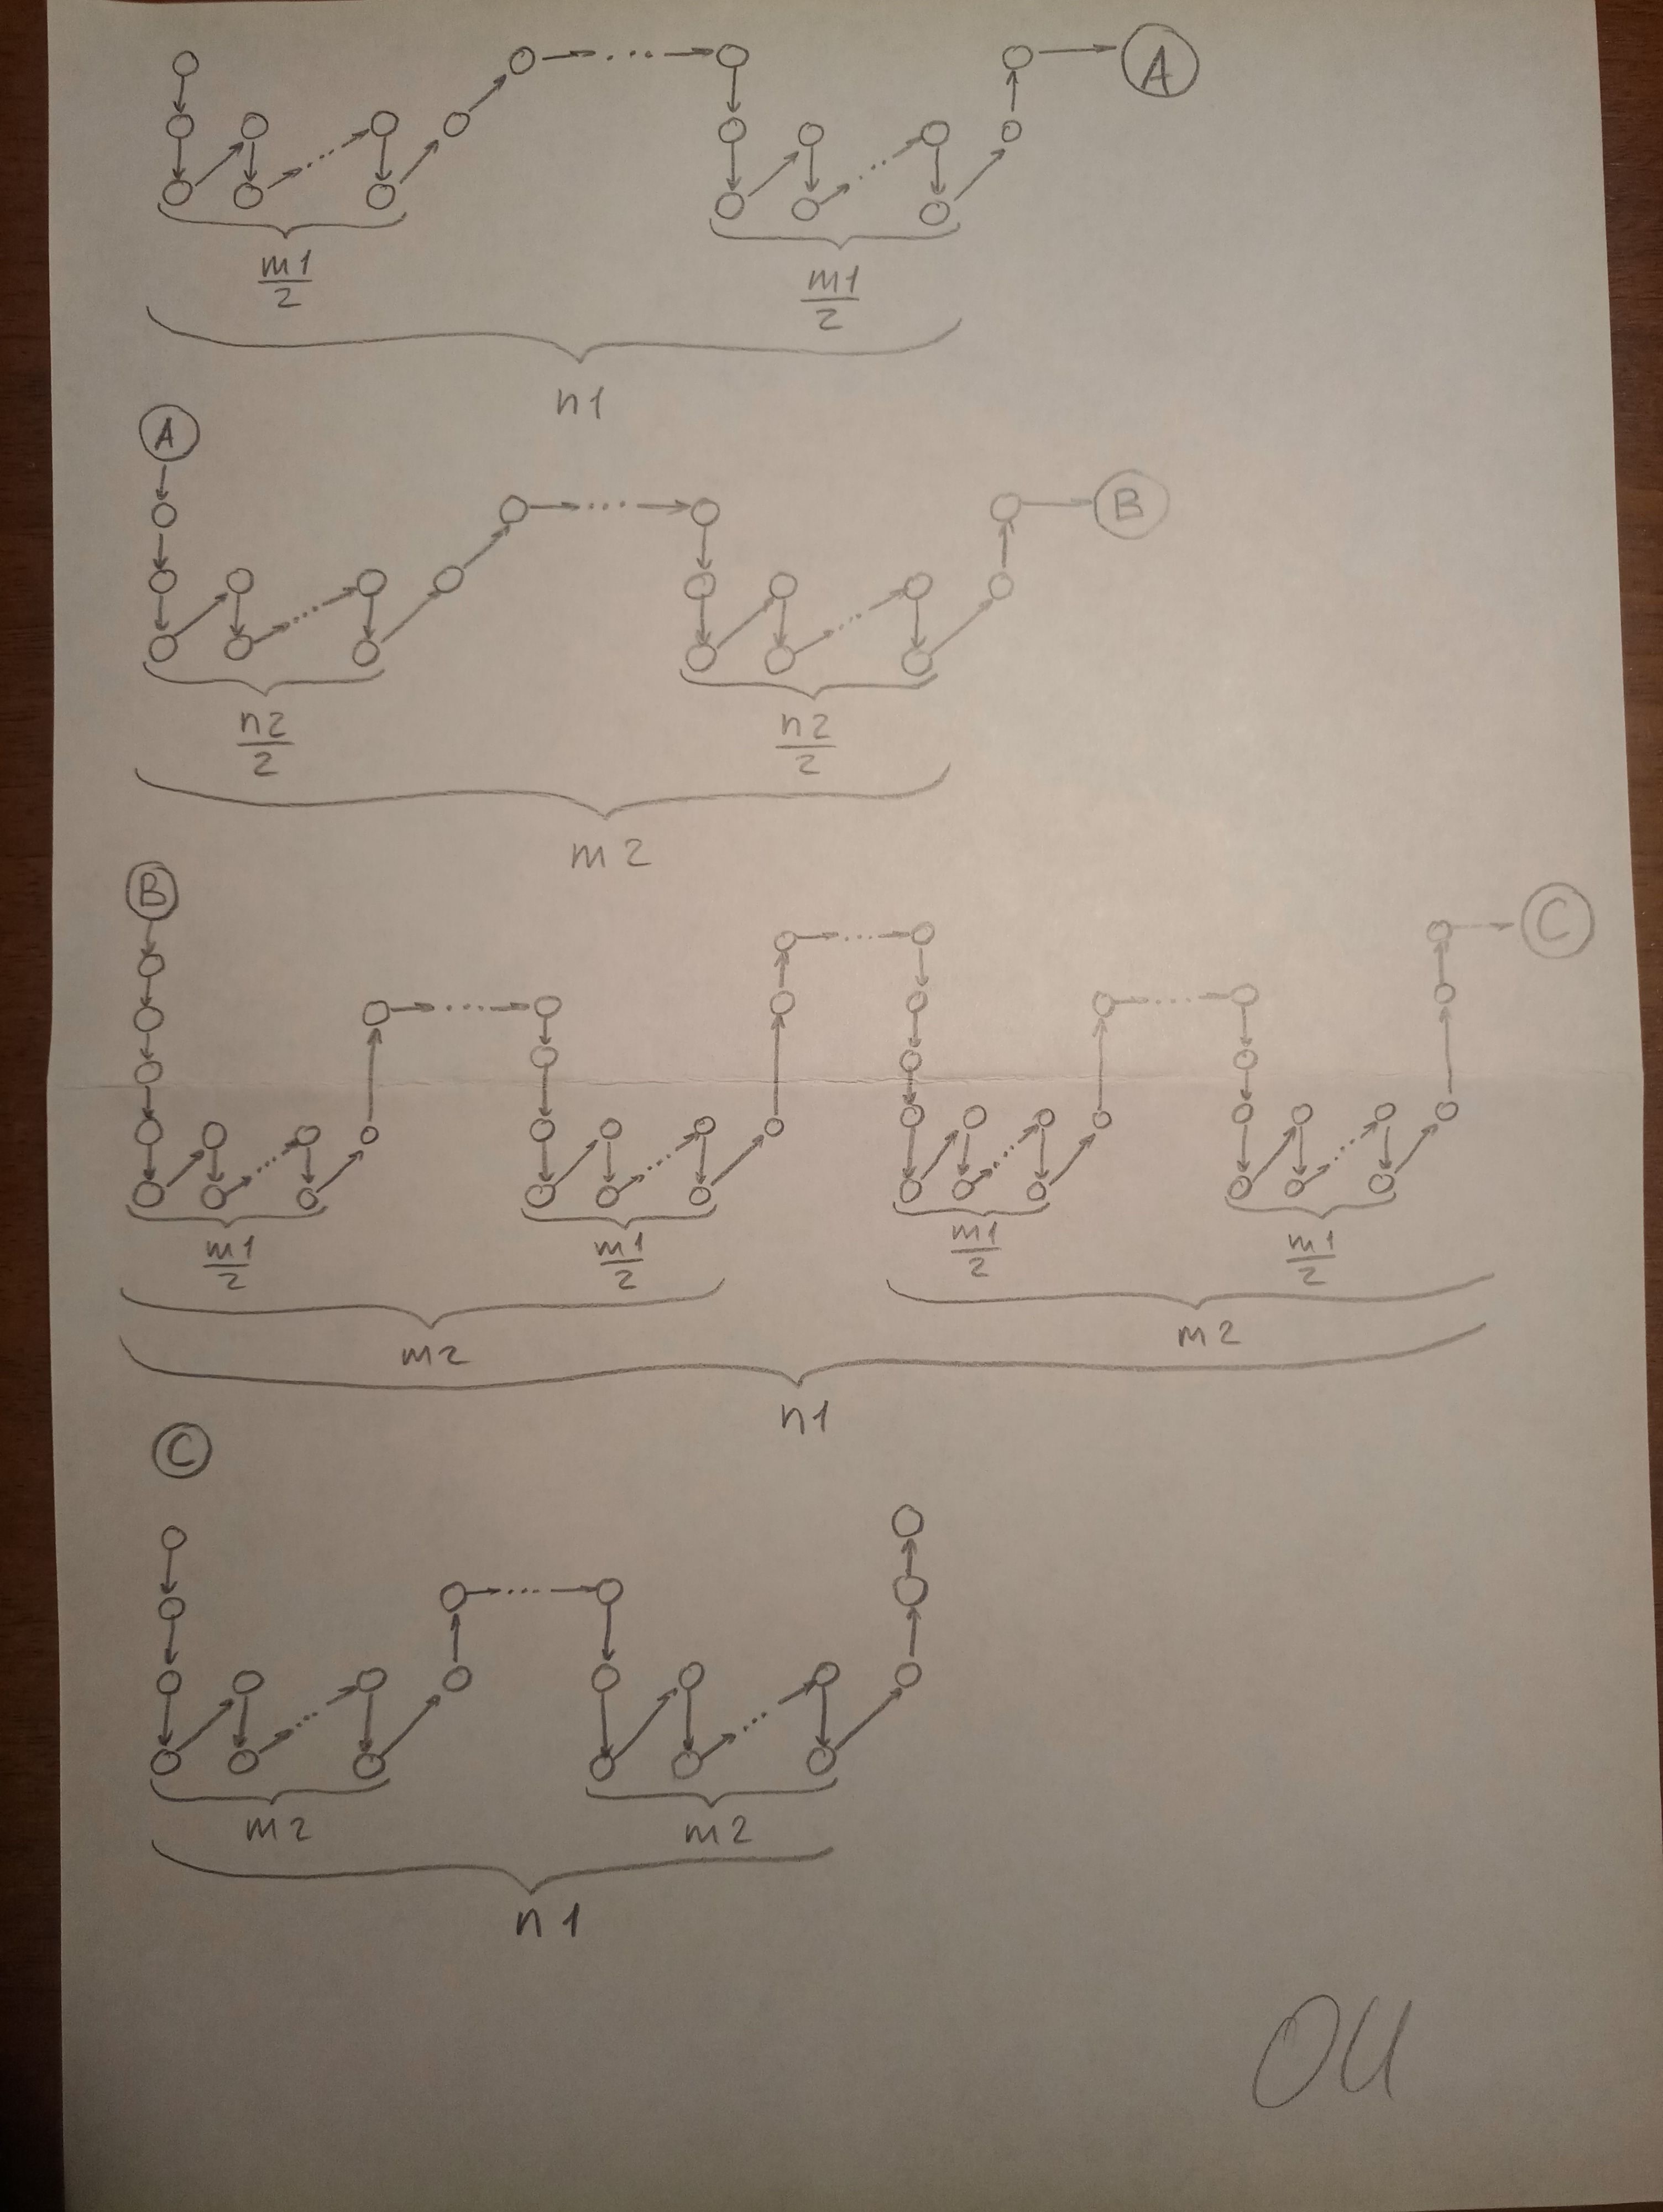 A
m1/2 m1/2
n1
A
B
n2/2 n2/2
m2
B
C
m1/2 m1/2 m1/2 m1/2
m2 m2
n1
C
m2 m2
n1